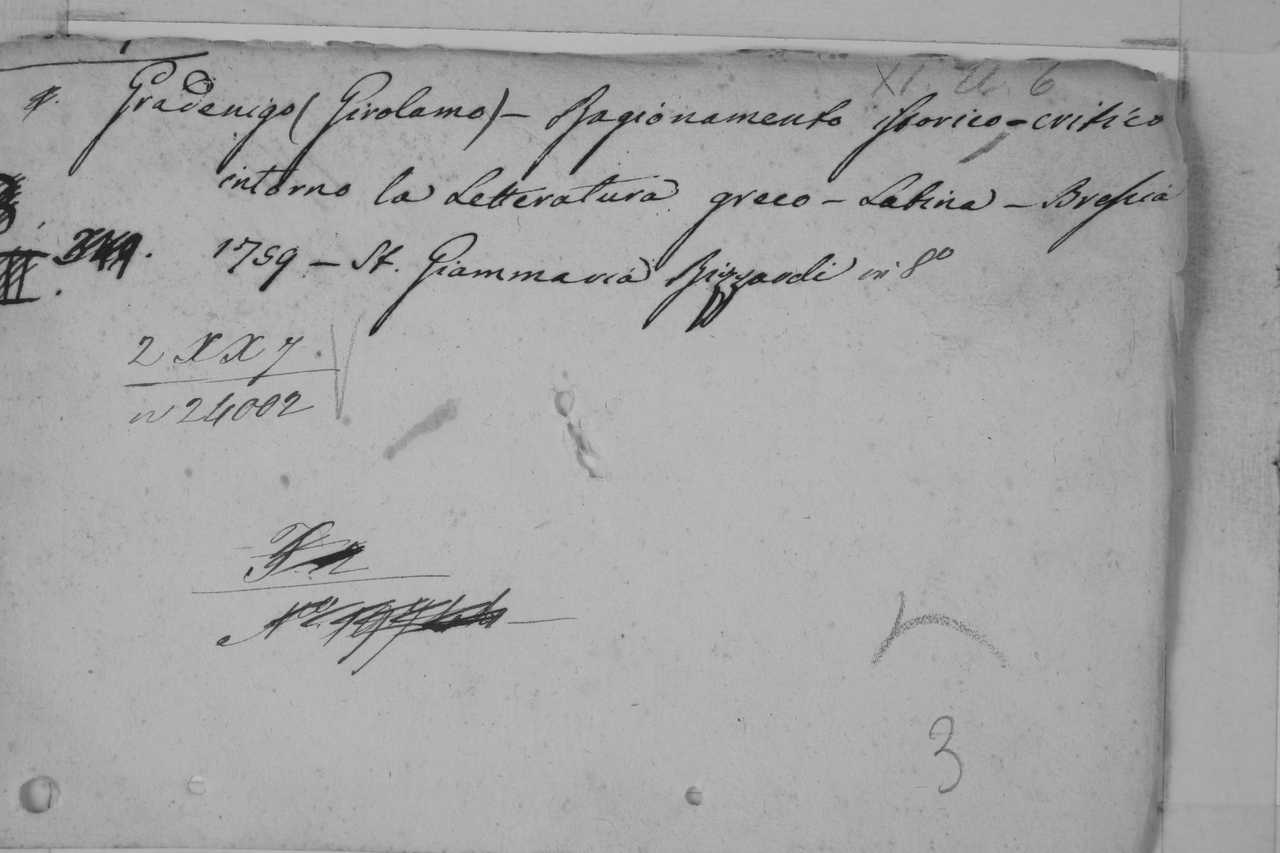 XI. A. 6
Gradenigo (Girolamo) – Ragionamento istorico-critico
intorno la Letteratura greco – Latina – Brescia
1759 – St. Giammaria Rizzardi in 8º
2 X X 7
nº 24002
3